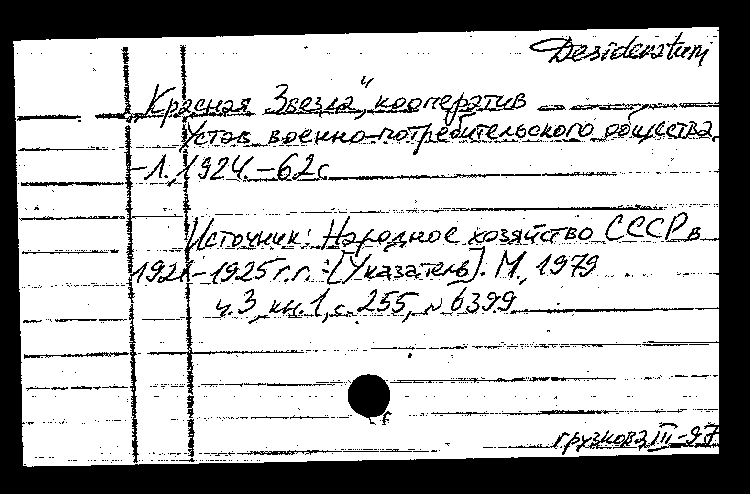 Desideratum
„Красная Звезда", кооператив
Устав военно-потребительского общества.
-Л., 1924. - 62 с
Источник: Народное хозяйство СССР в
1921-1925 г.г. - [Указатель]. М., 1979
ч.3, кн.1, с. 255, № 6399
грузкова III-97